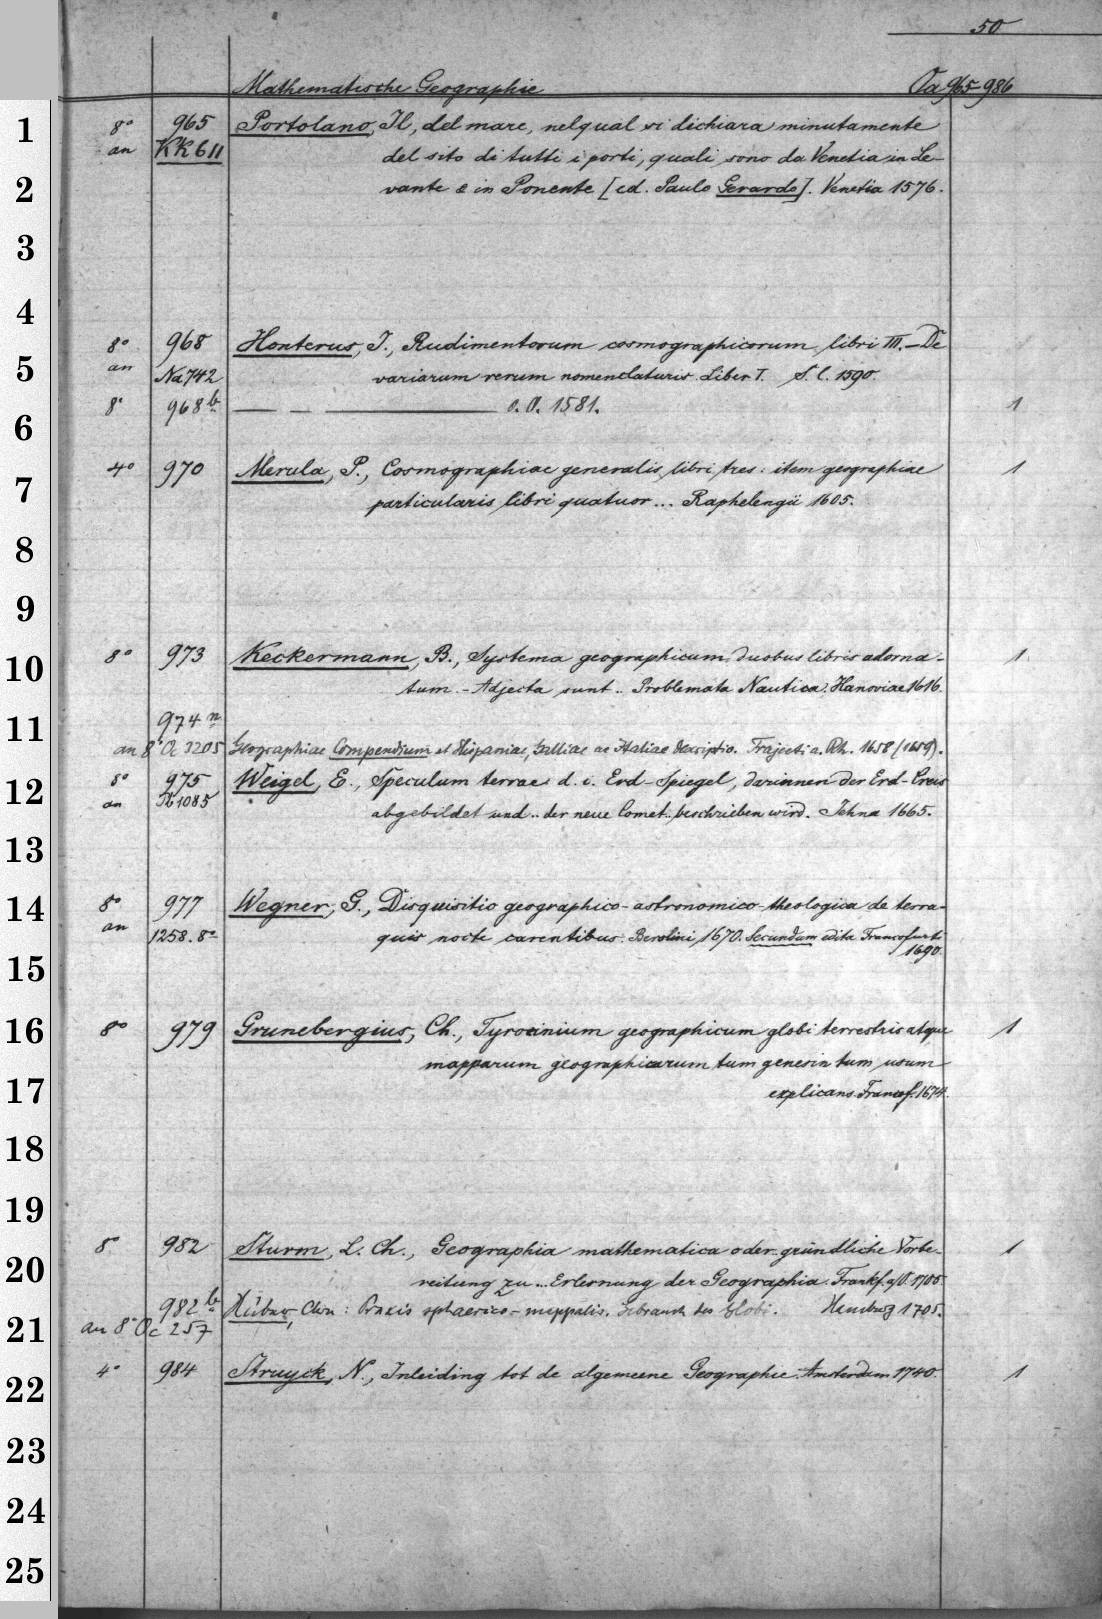 50
Mathematische Geographie Oa 965-986
1
8° 965 Portolano, Il, del mare, nel qual si dichiara minutamente
an KK 611 del sito di tutti i porti, quali sono da Venetia in Le-
2
vante e in Ponente [ed. Paulo Gerardo]. Venetia 1576.
3
4
8° 968 Honterus, J., Rudimentorum cosmographicorum libri III. — De
5
an Na 742 variarum rerum nomenclaturis Liber I. S. l. 1590.
8° 968 b — — — o. O. 1581. 1
6
4° 970 Merula, P., Cosmographiae generalis libri tres: item geographiae 1
7
particularis libri quatuor ... Raphelengii 1605.
8
9
8° 973 Keckermann, B., Systema geographicum duobus libris adorna- 1
10
tum. - Adjecta sunt .. Problemata Nautica. Hanoviae 1616.
974 n
11
an 8° Oc 3205 Geographiae Compendium et Hispaniae, Galliae ac Italiae descriptio. Trajecti a. Rh. 1658 (1659).
8° 975 Weigel, E., Speculum terrae d. i. Erd-Spiegel, darinnen der Erd-Creis
12
an 1085 abgebildet und .. der neue Comet .. beschrieben wird. Jehna 1665.
13
14
8° 977 Wegner, G., Disquisitio geographico-astronomico-theologica de terra-
an 1258. 8° quis nocte carentibus. Berolini 1670. Secundum edita Francofurti
1690.
15
16
8° 979 Grunebergius, Ch., Tyrocinium geographicum globi terrestris atque 1
mapparum geographicarum tum genesin tum usum
17
explicans. Francof. 1674.
18
19
8° 982 Sturm, L. Ch., Geographia mathematica oder gründliche Vorbe- 1
20
reitung zu ... Erlernung der Geographia. Frankf. a/O. 1705.
982 b Hübner, Chn: Praxis sphaerico-mappalis. Gebrauch des Globi. Hamburg 1705.
21
an 8° Oc 257
22
4° 984 Struyck, N., Inleiding tot de algemeene Geographie. Amsterdam 1740. 1
23
24
25